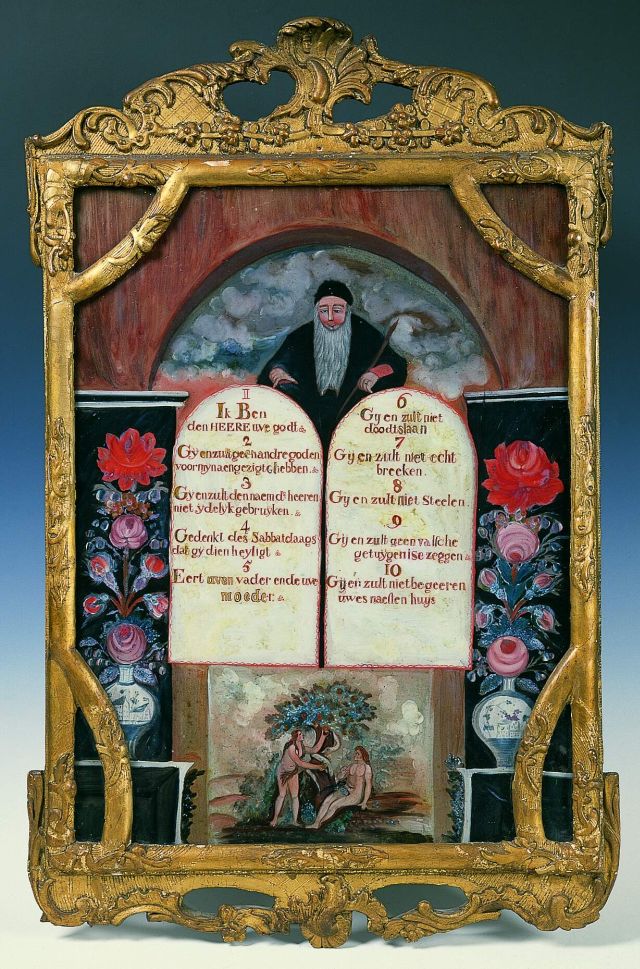 II
Ik Ben
den HEERE uwe godt
2
Gyen zult geen andre goden
voor myn aengezigt hebben.
3
Gyen zult den naem ds heeren
niet ydelyk gebruyken.
4
Gedenkt des Sabbatdaags
dat gy dien heyligt
5
Eert uwen vader ende uwe
moeder.
6
Gyen zult niet
doodtslaan
7
Gyen zult niet echt
breeken.
8
Gyen zult niet Steelen.
9
Gyen zult geen valsche
getuygenise zeggen
10
Gyen zult niet begeeren
uwes naesten huys